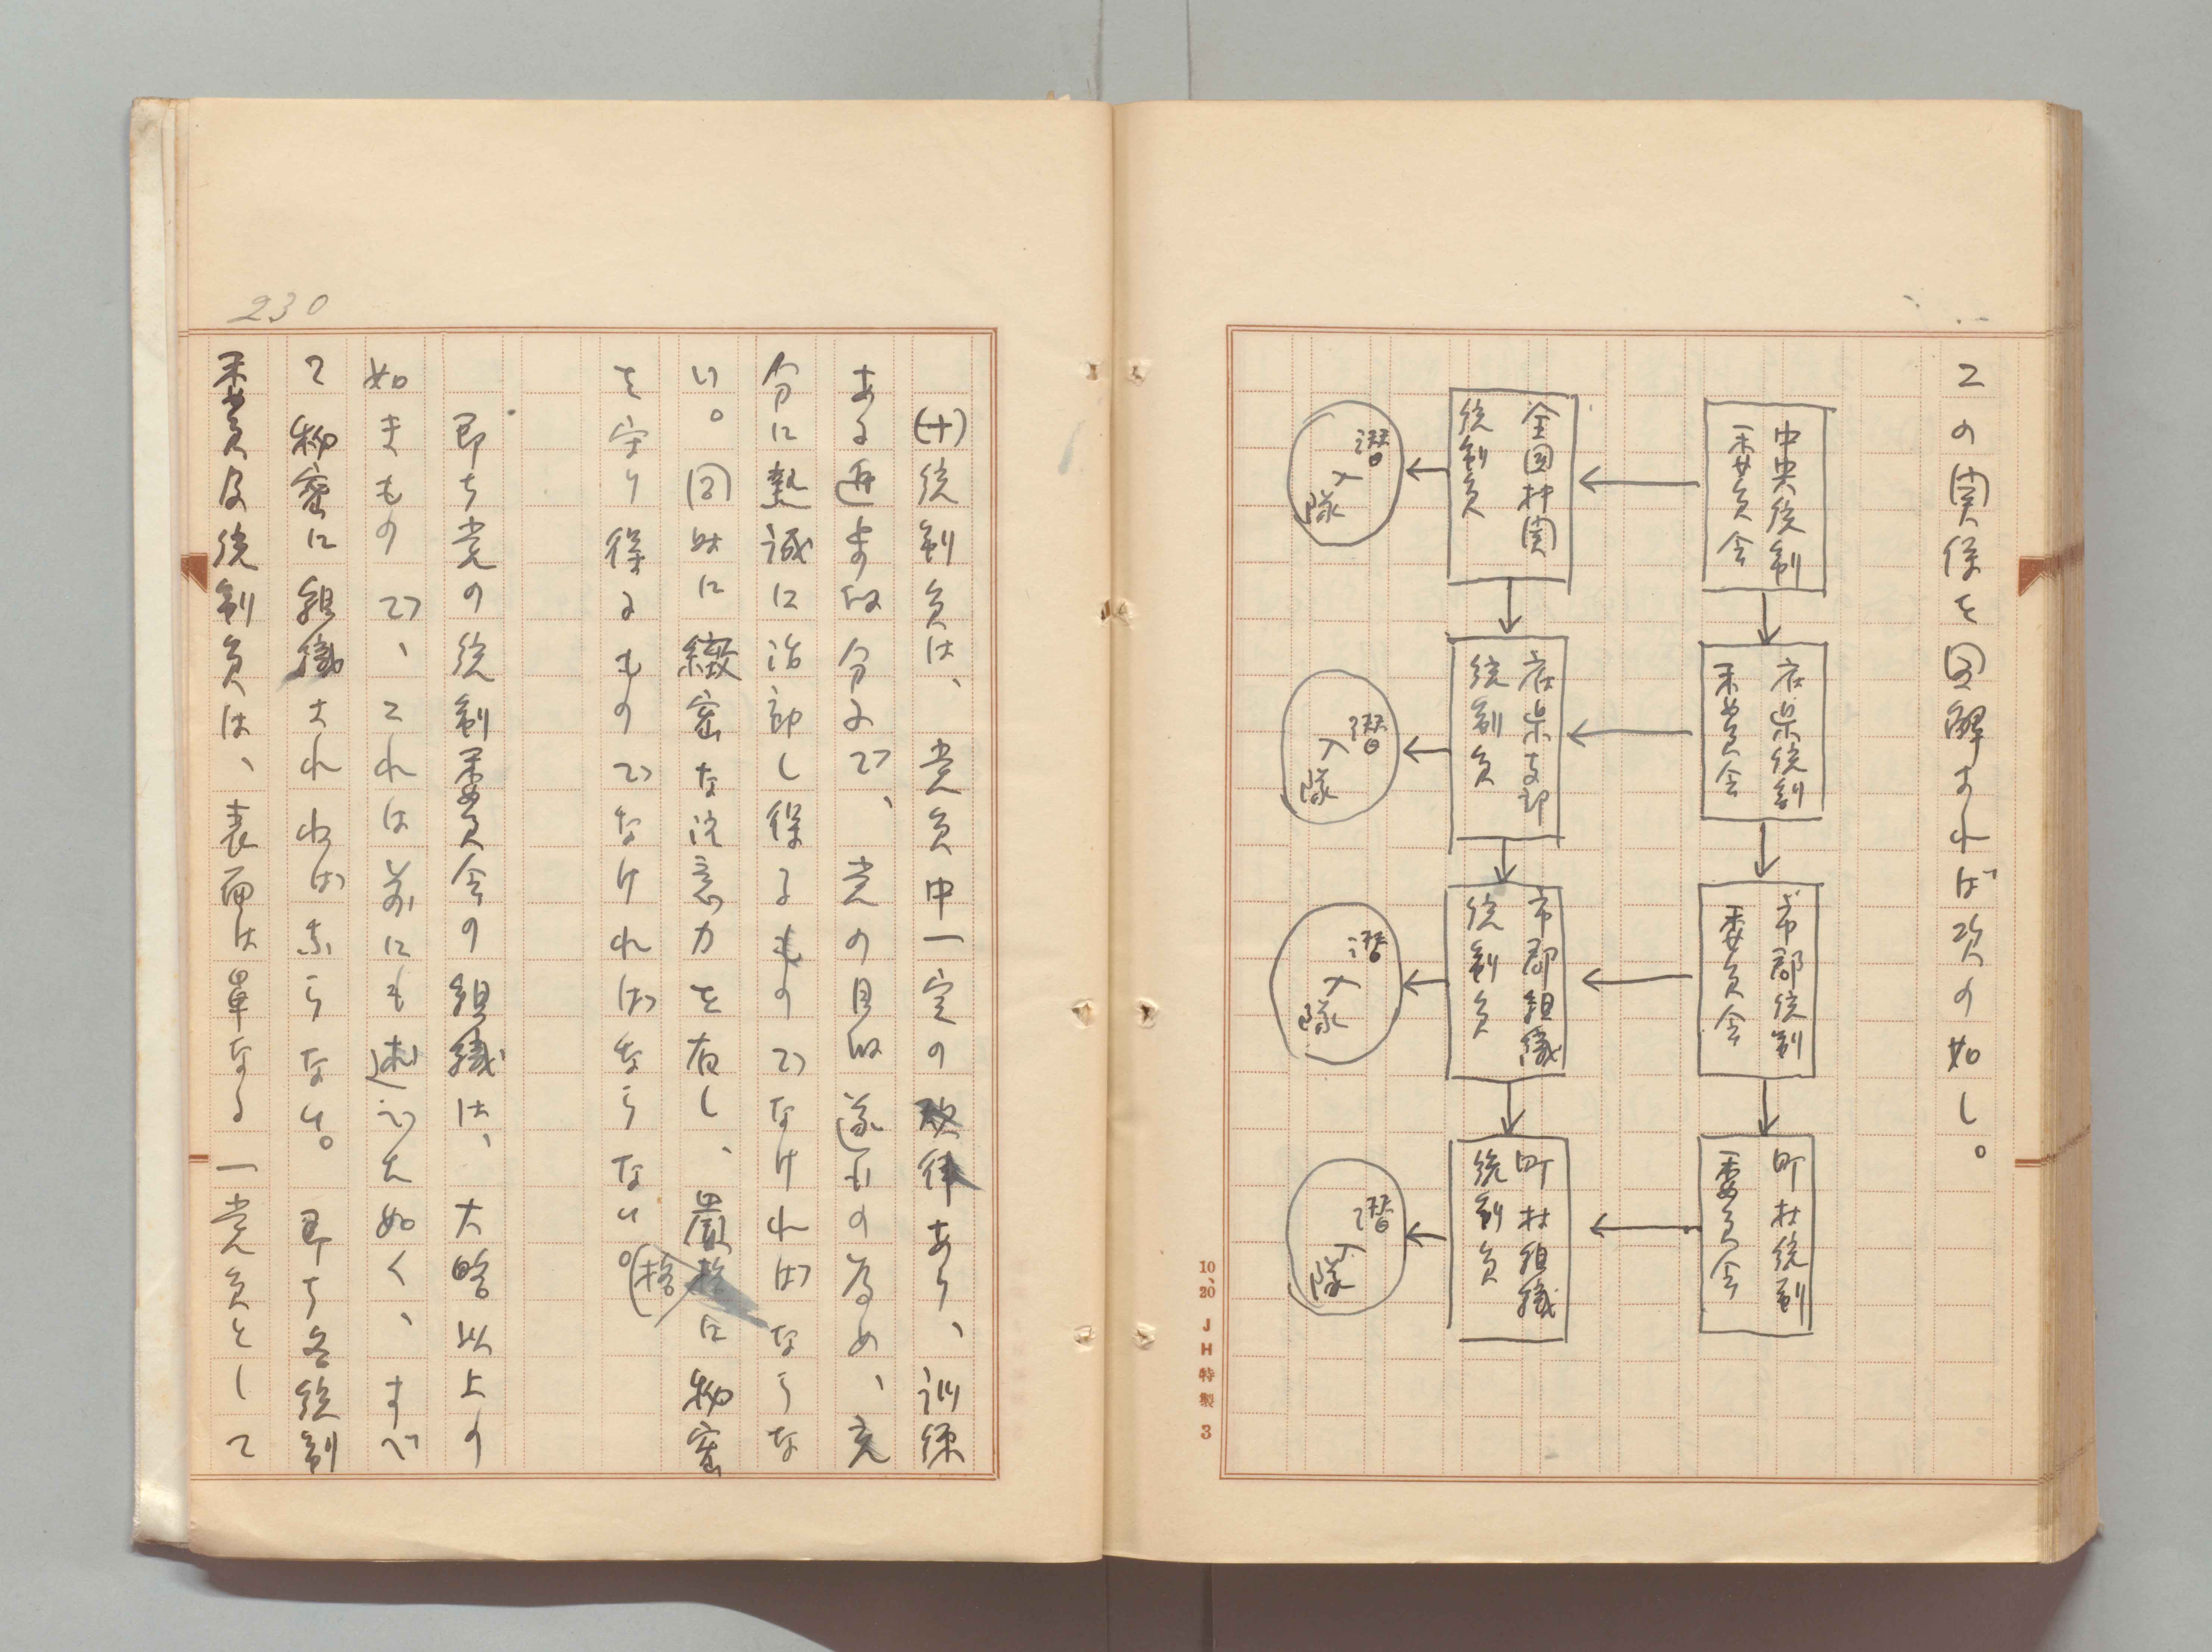 この関係を図解すれば次の如し。
中央統制
委員会
府県統制
委員会
市郡統制
委員会
町村統制
委員会
全国機関
統制員
府県支部
統制員
市郡組織
統制員
町村組織
統制員
潜入隊
潜入隊
潜入隊
潜入隊
10、20 JH特製 3
230
(十)統制員は、党員中一定の あり、訓練
ある進歩的分子で、党の目的遂行の為め、充
分に熱誠に活動し得るものでなければならな
い。同時に緻密な注意力を有し、厳格に秘密
を守り得るものでなければならない。(格)
即ち党の統制委員会の組織は、大略以上の
如きもので、これは前にも述べた如く、すべ
て秘密に組織されねばならない。即ち各統制
委員及統制員は、表面は単なる一党員として